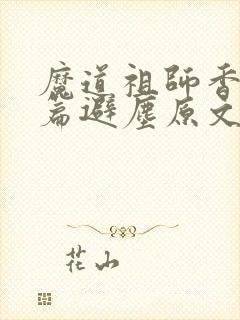 魔道祖師香
篇避塵原文
花山